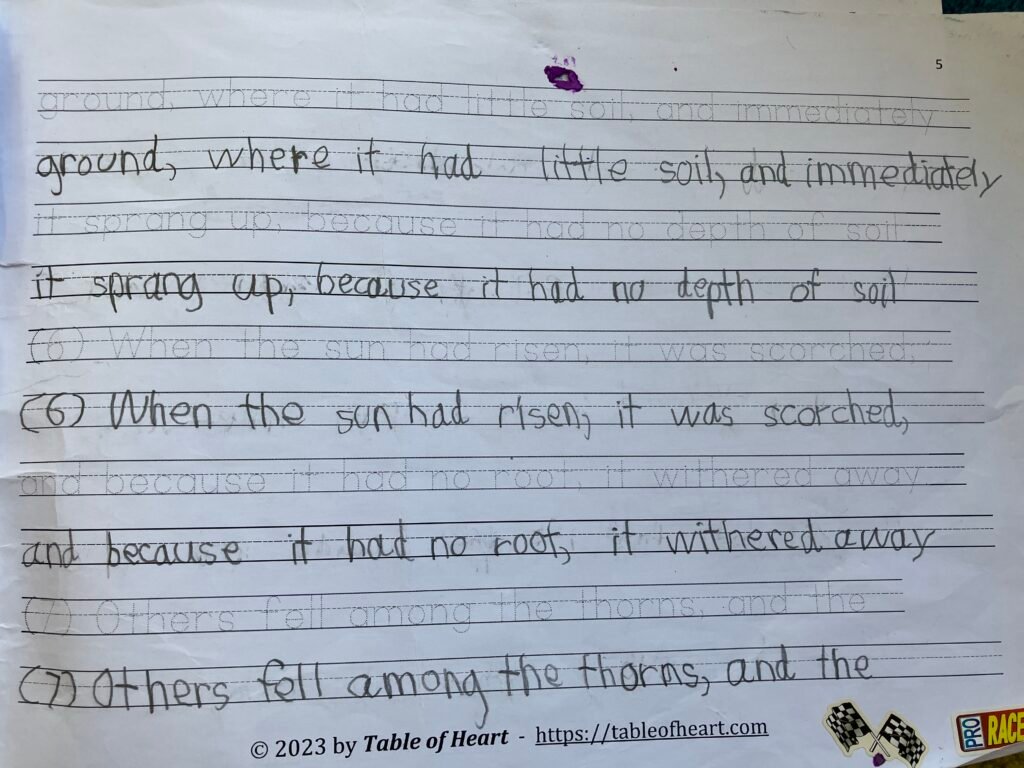 5
ground, where it had little soil, and immediately
ground, where it had little soil, and immediately
it sprang up, because it had no depth of soil
it sprang up, because it had no depth of soil
(6) When the sun had risen, it was scorched,
(6) When the sun had risen, it was scorched,
and because it had no root, it withered away
and because it had no root, it withered away
(7) Others fell among the thorns, and the
(7) Others fell among the thorns, and the
© 2023 by Table of Heart - https://tableofheart.com
PRO RACE